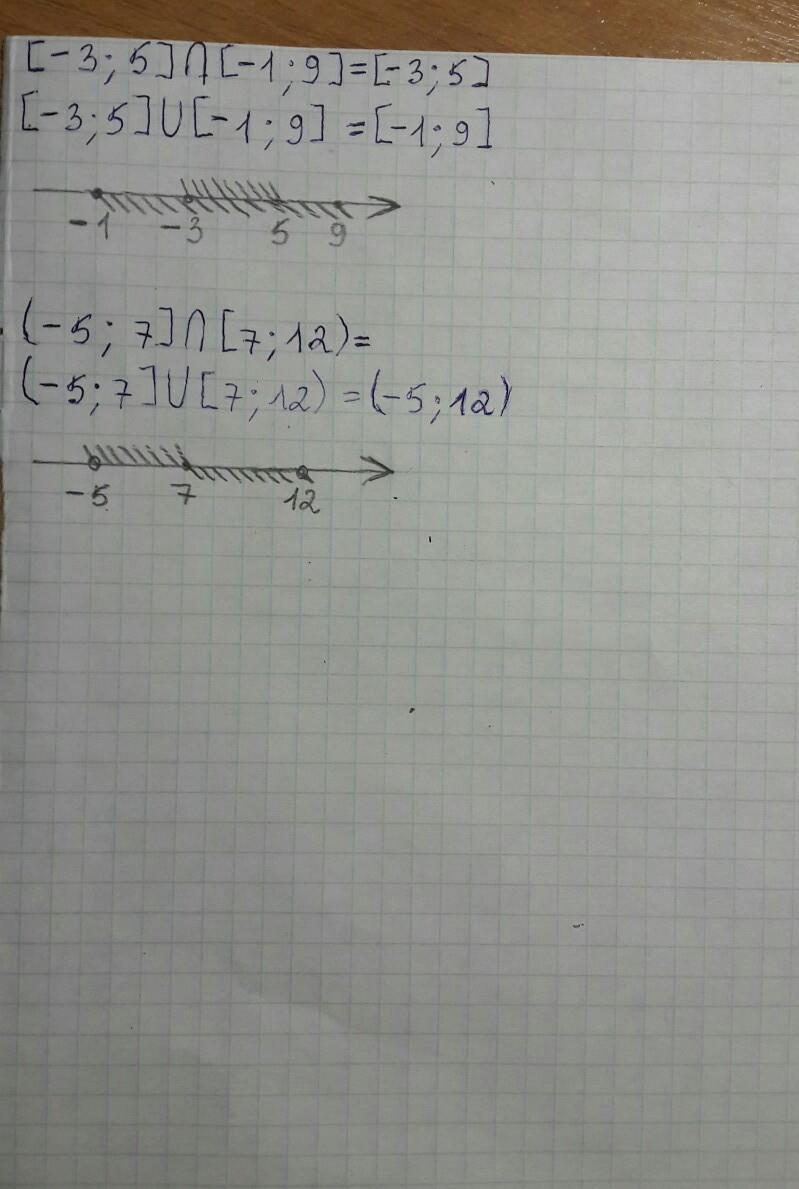 [-3; 5]∩[-1; 9]=[-3; 5]
[-3; 5]∪[-1; 9] =[-1; 9]
-1 -3 5 9
(-5; 7]∩[7; 12)=
(-5; 7]∪[7; 12) =(-5; 12)
-5 7 12